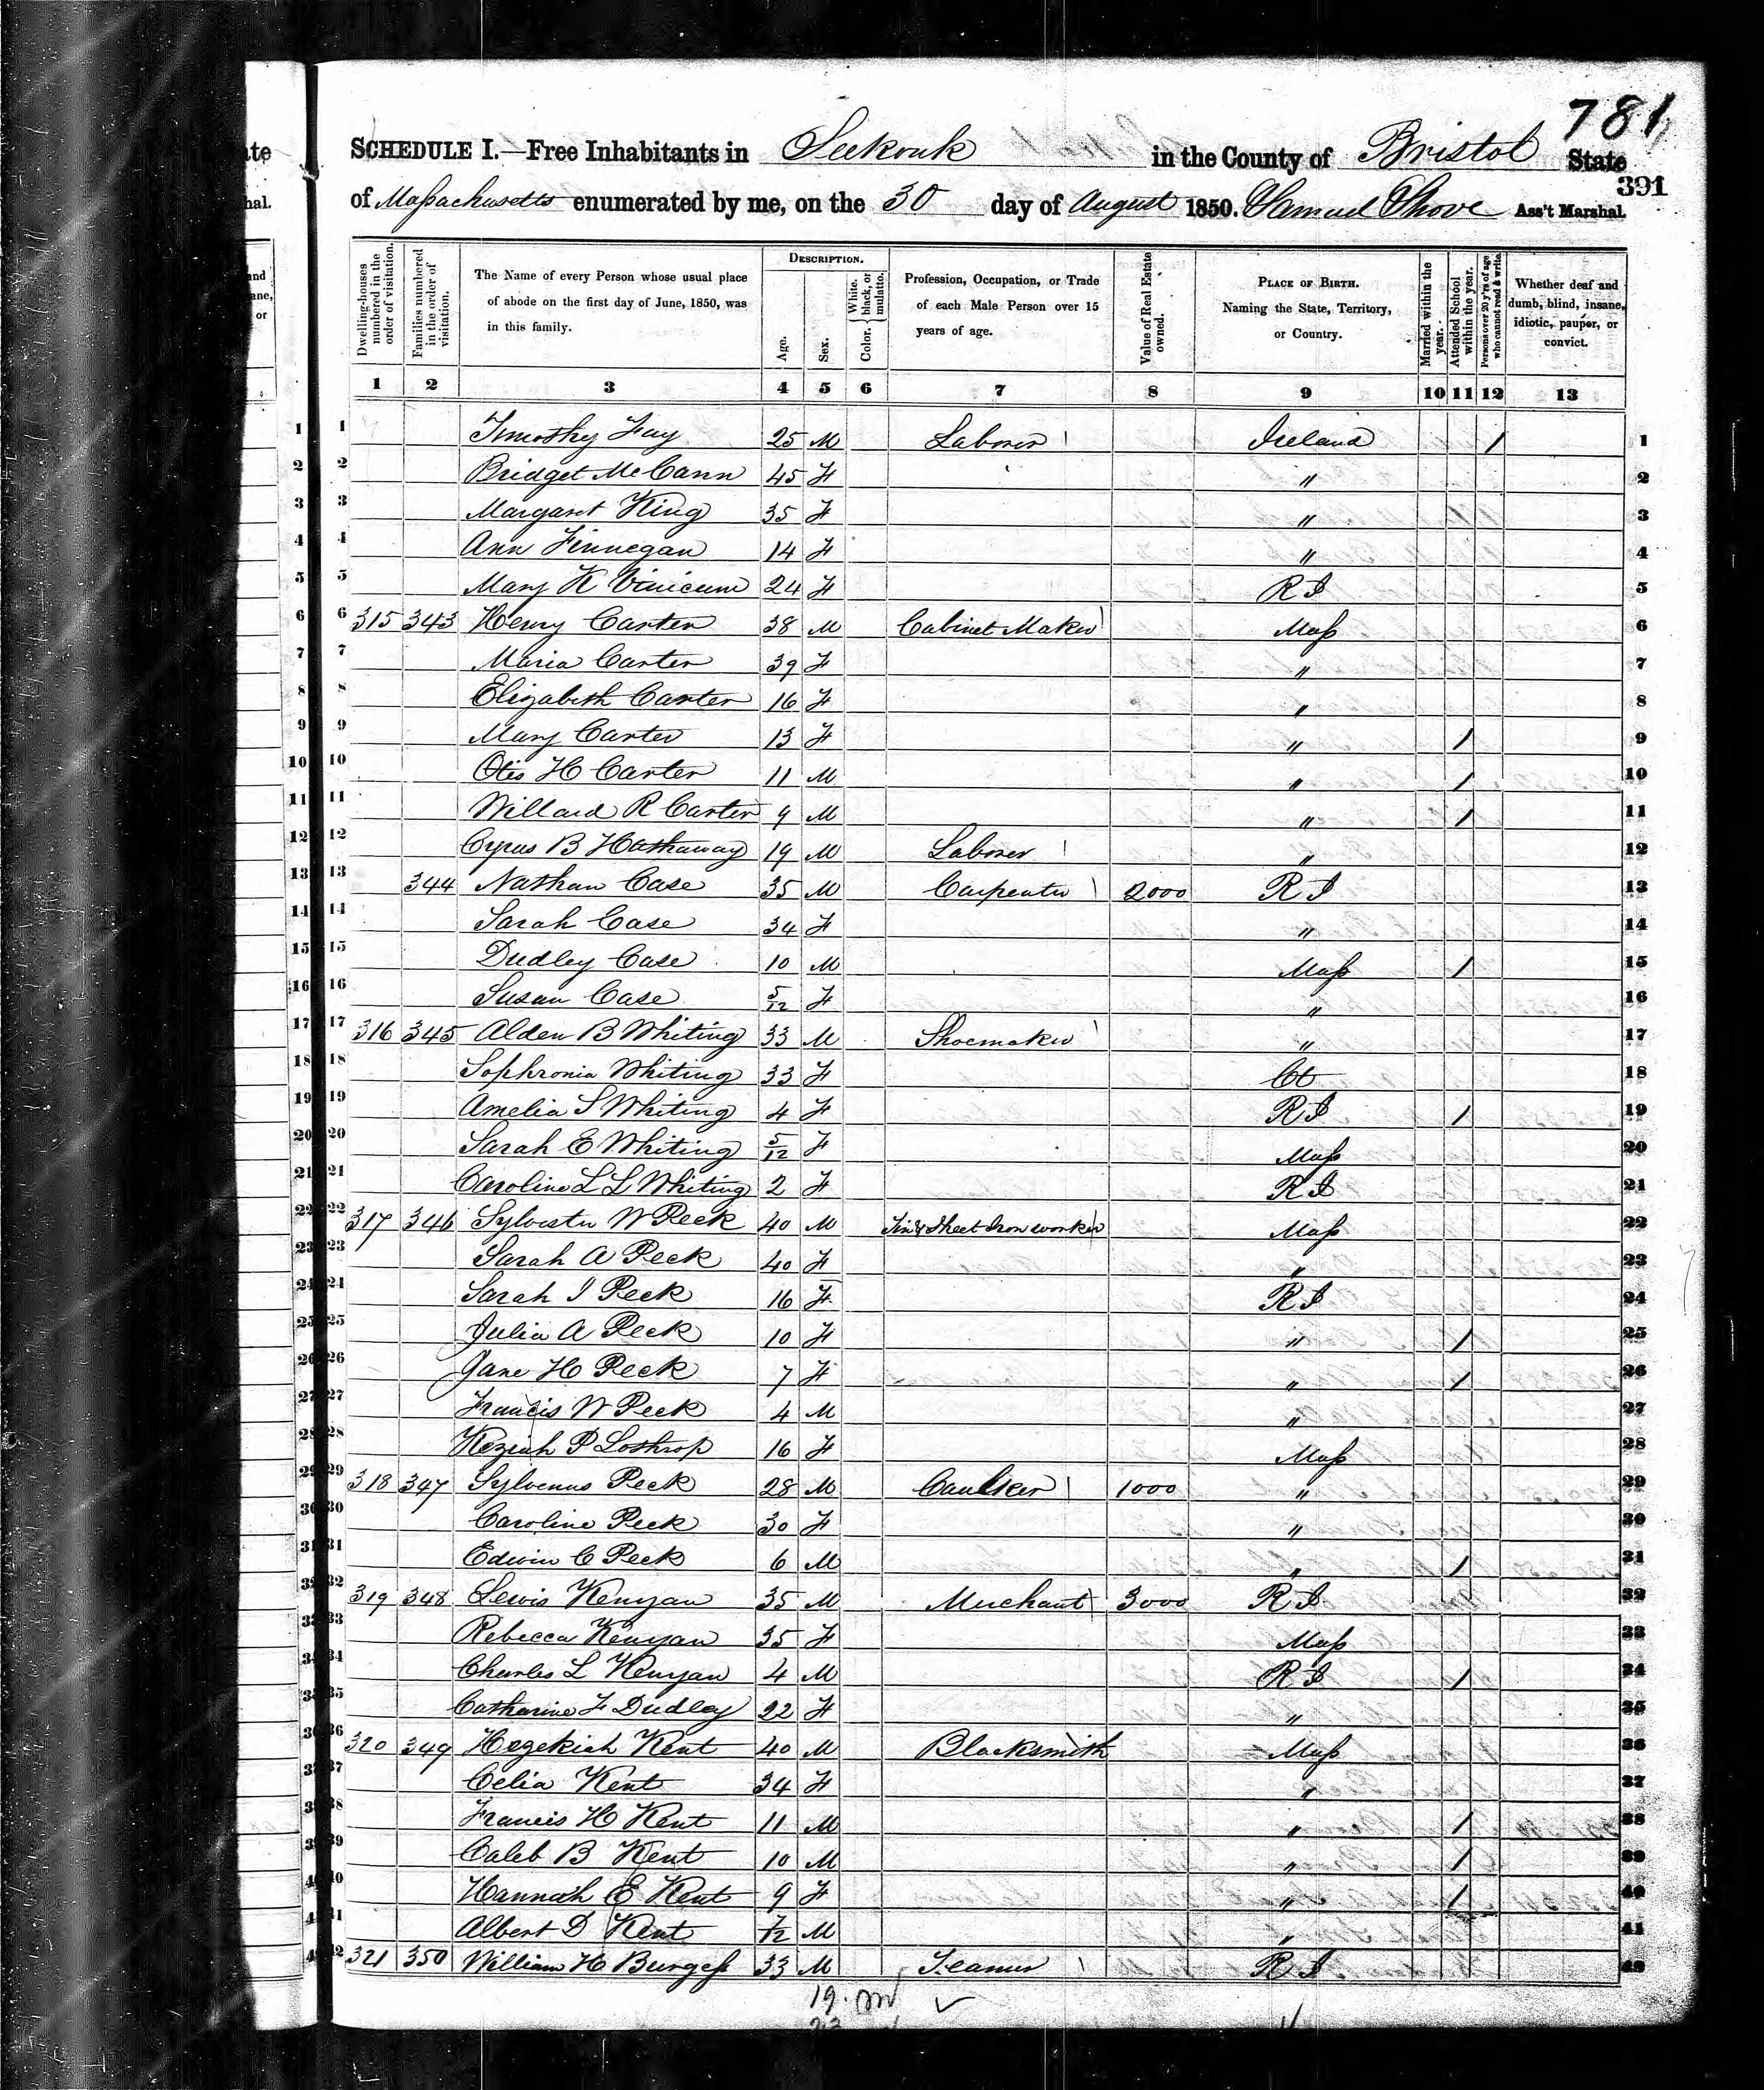 781
SCHEDULE I.—Free Inhabitants in Seekonk in the County of Bristol State
391
of Massachusetts enumerated by me, on the 30 day of August 1850. Samuel Shove Ass't Marshal.
Dwelling-houses numbered in the order of visitation.
Families numbered in the order of visitation.
The Name of every Person whose usual place of abode on the first day of June, 1850, was in this family.
DESCRIPTION.
Age.
Sex.
Color. { White, black, or mulatto.
Profession, Occupation, or Trade of each Male Person over 15 years of age.
Value of Real Estate owned.
PLACE OF BIRTH. Naming the State, Territory, or Country.
Married within the year.
Attended School within the year.
Persons over 20 y'rs of age who cannot read & write.
Whether deaf and dumb, blind, insane, idiotic, pauper, or convict.
1 2 3 4 5 6 7 8 9 10 11 12 13
1 1 Timothy Fay 25 M Laborer Ireland / 1
2 2 Bridget McCann 45 F " 2
3 3 Margaret King 35 F " 3
4 4 Ann Finnegan 14 F " 4
5 5 Mary K Vinicum 24 F R I 5
6 6 315 343 Henry Carter 38 M Cabinet Maker Mass 6
7 7 Maria Carter 39 F " 7
8 8 Elizabeth Carter 16 F " 8
9 9 Mary Carter 13 F " / 9
10 10 Otis H Carter 11 M " / 10
11 11 Willard R Carter 9 M " / 11
12 12 Cyrus B Hathaway 19 M Laborer " 12
13 13 344 Nathan Case 35 M Carpenter 2000 R I 13
14 14 Sarah Case 34 F " 14
15 15 Dudley Case 10 M Mass / 15
16 16 Susan Case 5/12 F " 16
17 17 316 345 Alden B Whiting 33 M Shoemaker " 17
18 18 Sophronia Whiting 33 F Ct 18
19 19 Amelia S Whiting 4 F R I / 19
20 20 Sarah E Whiting 5/12 F Mass 20
21 21 Caroline L L Whiting 2 F R I 21
22 22 317 346 Sylvester W Peck 40 M Tin & Sheet Iron worker Mass 22
23 23 Sarah A Peck 40 F " 23
24 24 Sarah J Peck 16 F R I 24
25 25 Julia A Peck 10 F " / 25
26 26 Jane H Peck 7 F " / 26
27 27 Francis W Peck 4 M " 27
28 28 Keziah P Lothrop 16 F Mass 28
29 29 318 347 Sylvenus Peck 28 M Caulker 1000 " 29
30 30 Caroline Peck 30 F " 30
31 31 Edwin C Peck 6 M " / 31
32 32 319 348 Lewis Kenyan 35 M Merchant 3000 R I 32
33 33 Rebecca Kenyan 35 F Mass 33
34 34 Charles L Kenyan 4 M R I / 34
35 35 Catharine F Dudley 22 F " 35
36 36 320 349 Hezekiah Kent 40 M Blacksmith Mass 36
37 37 Celia Kent 34 F " 37
38 38 Francis H Kent 11 M " / 38
39 39 Caleb B Kent 10 M " / 39
40 40 Hannah E Kent 9 F " / 40
41 41 Albert D Kent 7/12 M " 41
42 42 321 350 William H Burgess 33 M Teamer R I 42
19. m
23